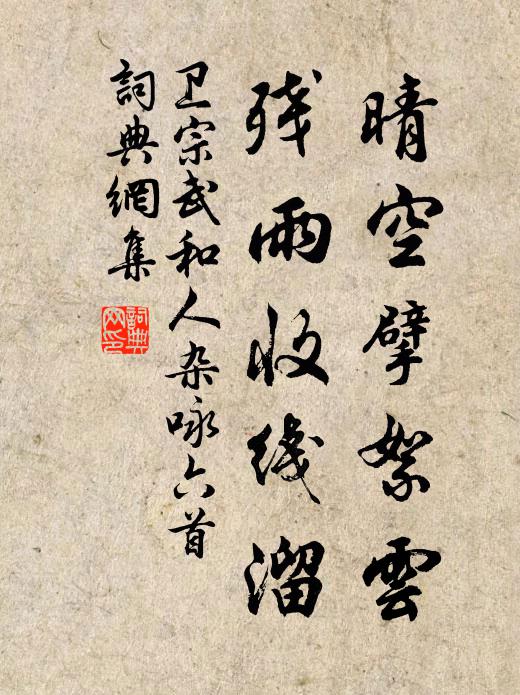 晴空擘絮雲
残雨收线溜
卫宗武和人杂咏六首
詞典網集
詞典网印